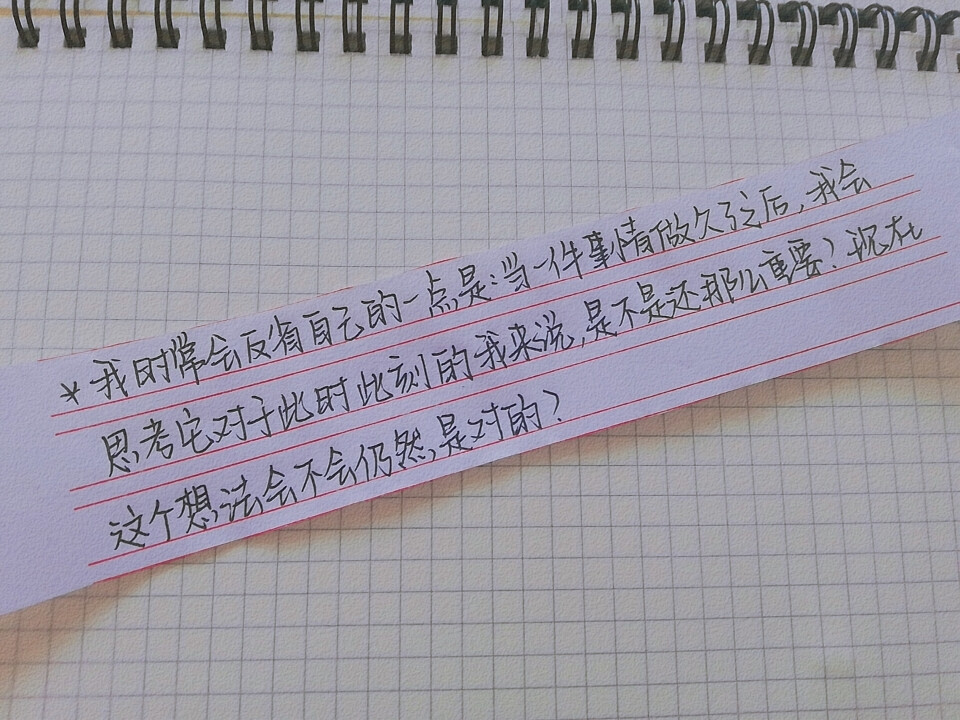 *我时常会反省自己的一点是:当一件事情做久了之后,我会
思考它对于此时此刻的我来说,是不是还那么重要?现在
这个想法会不会仍然是对的?